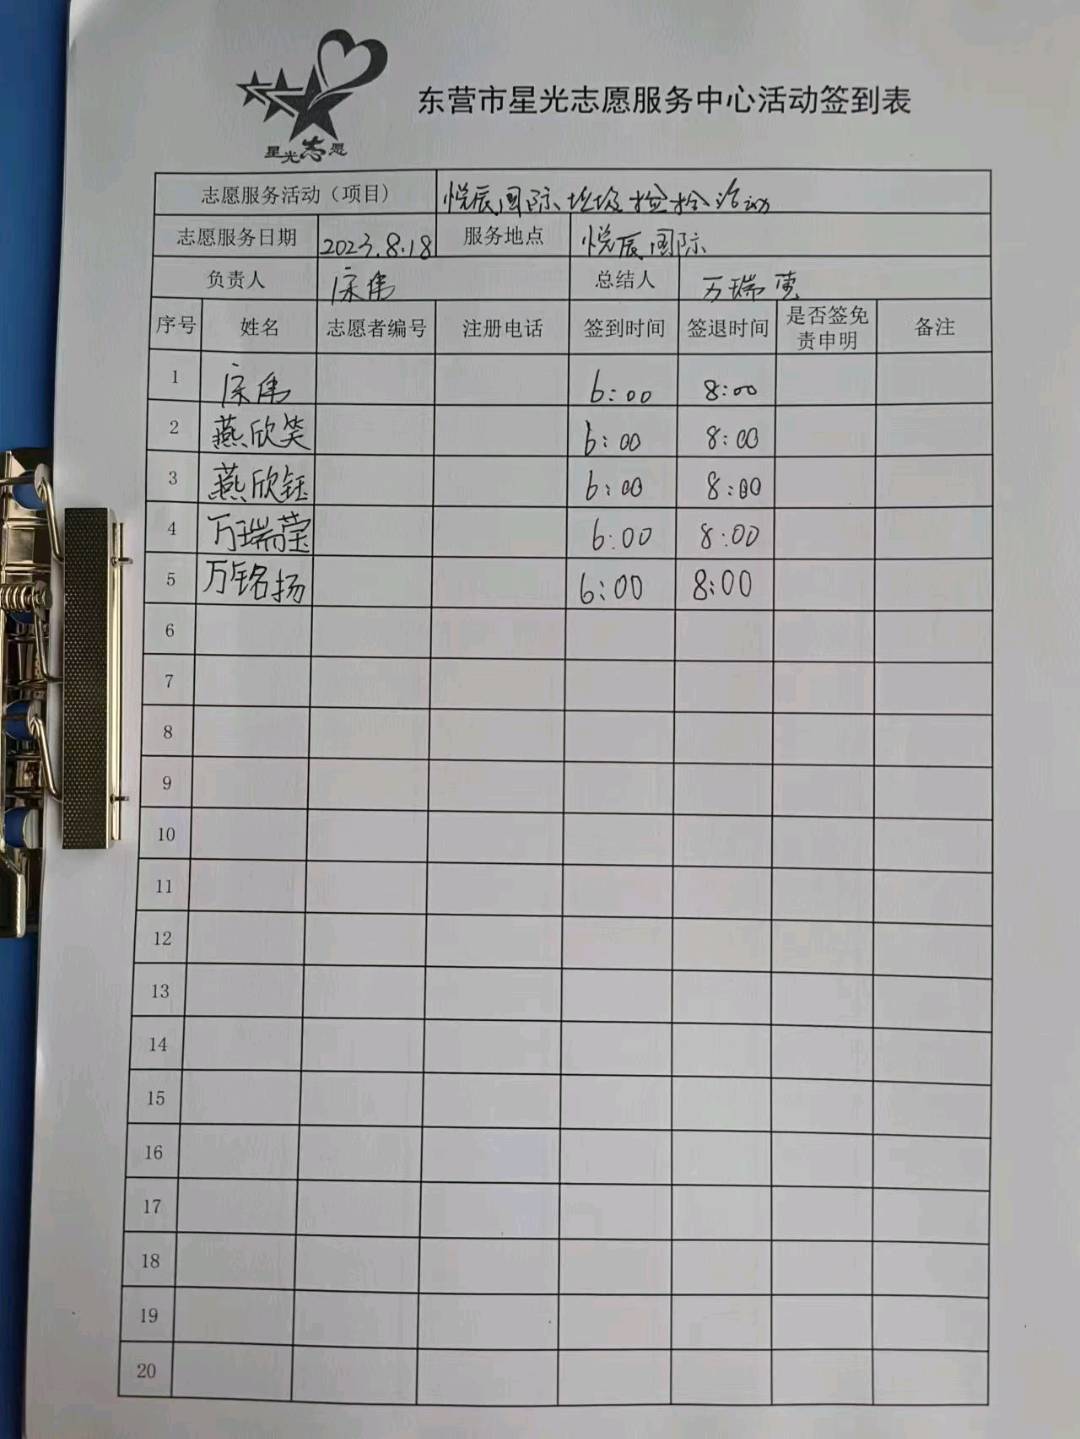 星光志愿
东营市星光志愿服务中心活动签到表
志愿服务活动（项目） 悦辰国际垃圾捡拾活动
志愿服务日期 2023.8.18 服务地点 悦辰国际
负责人 宗伟 总结人 万瑞莹
序号 姓名 志愿者编号 注册电话 签到时间 签退时间 是否签免责申明 备注
1 宗伟 6:00 8:00
2 燕欣笑 6:00 8:00
3 燕欣钰 6:00 8:00
4 万瑞莹 6:00 8:00
5 万铭扬 6:00 8:00
6
7
8
9
10
11
12
13
14
15
16
17
18
19
20